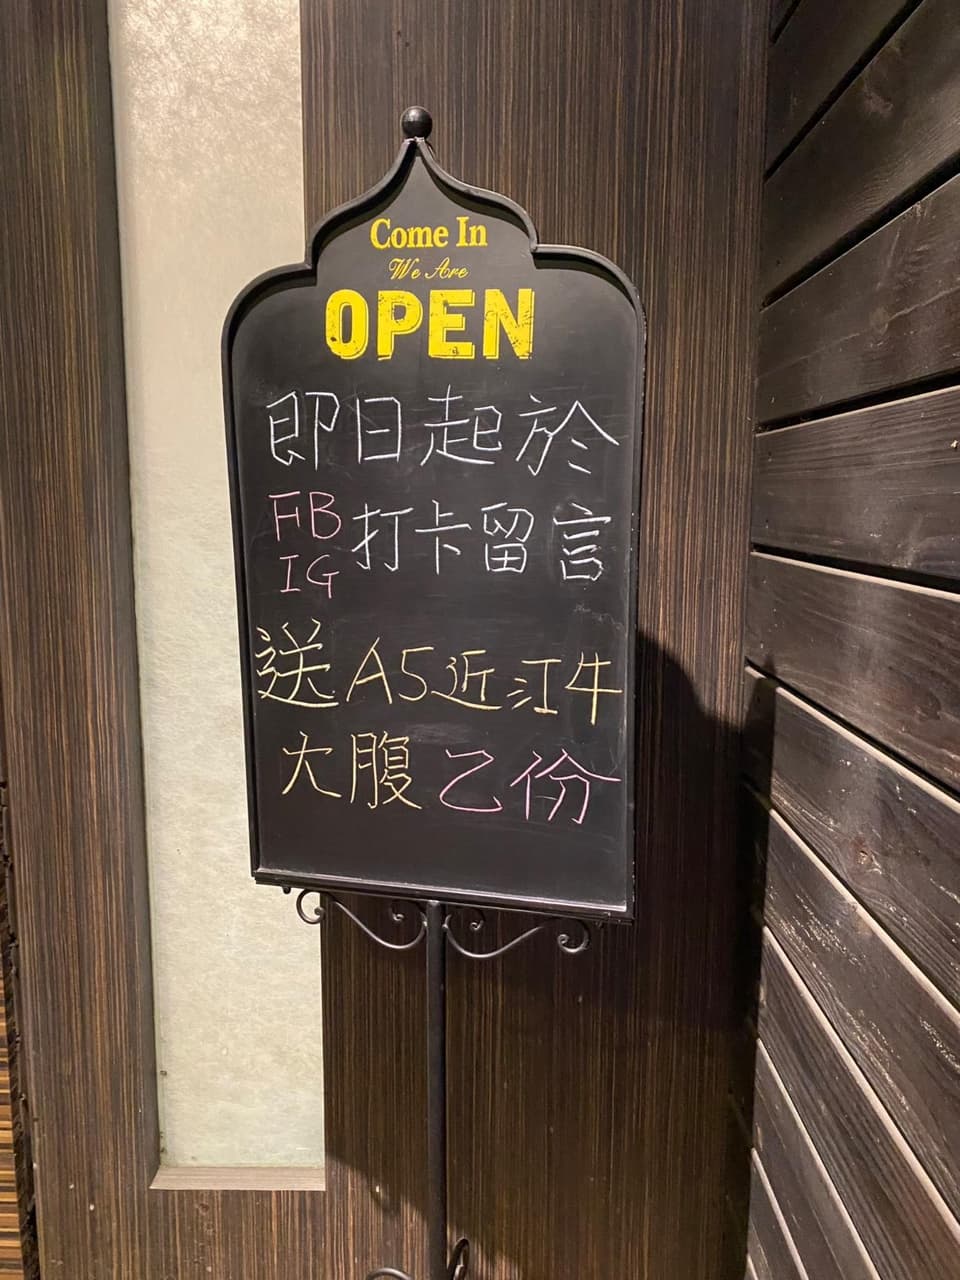 Come In
We Are
OPEN
即日起於
FB
IG
打卡留言
送A5近江牛
大腹乙份